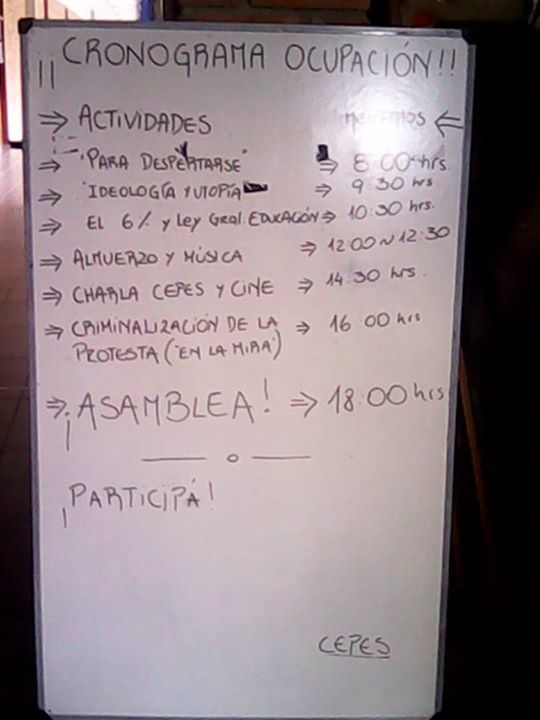 ¡¡ CRONOGRAMA OCUPACIÓN!!
⇒ ACTIVIDADES ⇐
⇒ "PARA DESPERTARSE" ⇒ 8:00 hrs.
⇒ "IDEOLOGÍA Y UTOPÍA ⇒ 9:30 hrs.
⇒ EL 6% y Ley Gral. EDUCACIÓN ⇒ 10:30 hrs.
⇒ ALMUERZO Y MÚSICA ⇒ 12:00 ~ 12:30
⇒ CHARLA CEPES Y CINE ⇒ 14:30 hrs.
⇒ CRIMINALIZACIÓN DE LA ⇒ 16:00 hrs
PROTESTA ("EN LA MIRA")
⇒ ¡ASAMBLEA! ⇒ 18:00 hrs
¡PARTICIPÁ!
CEPES